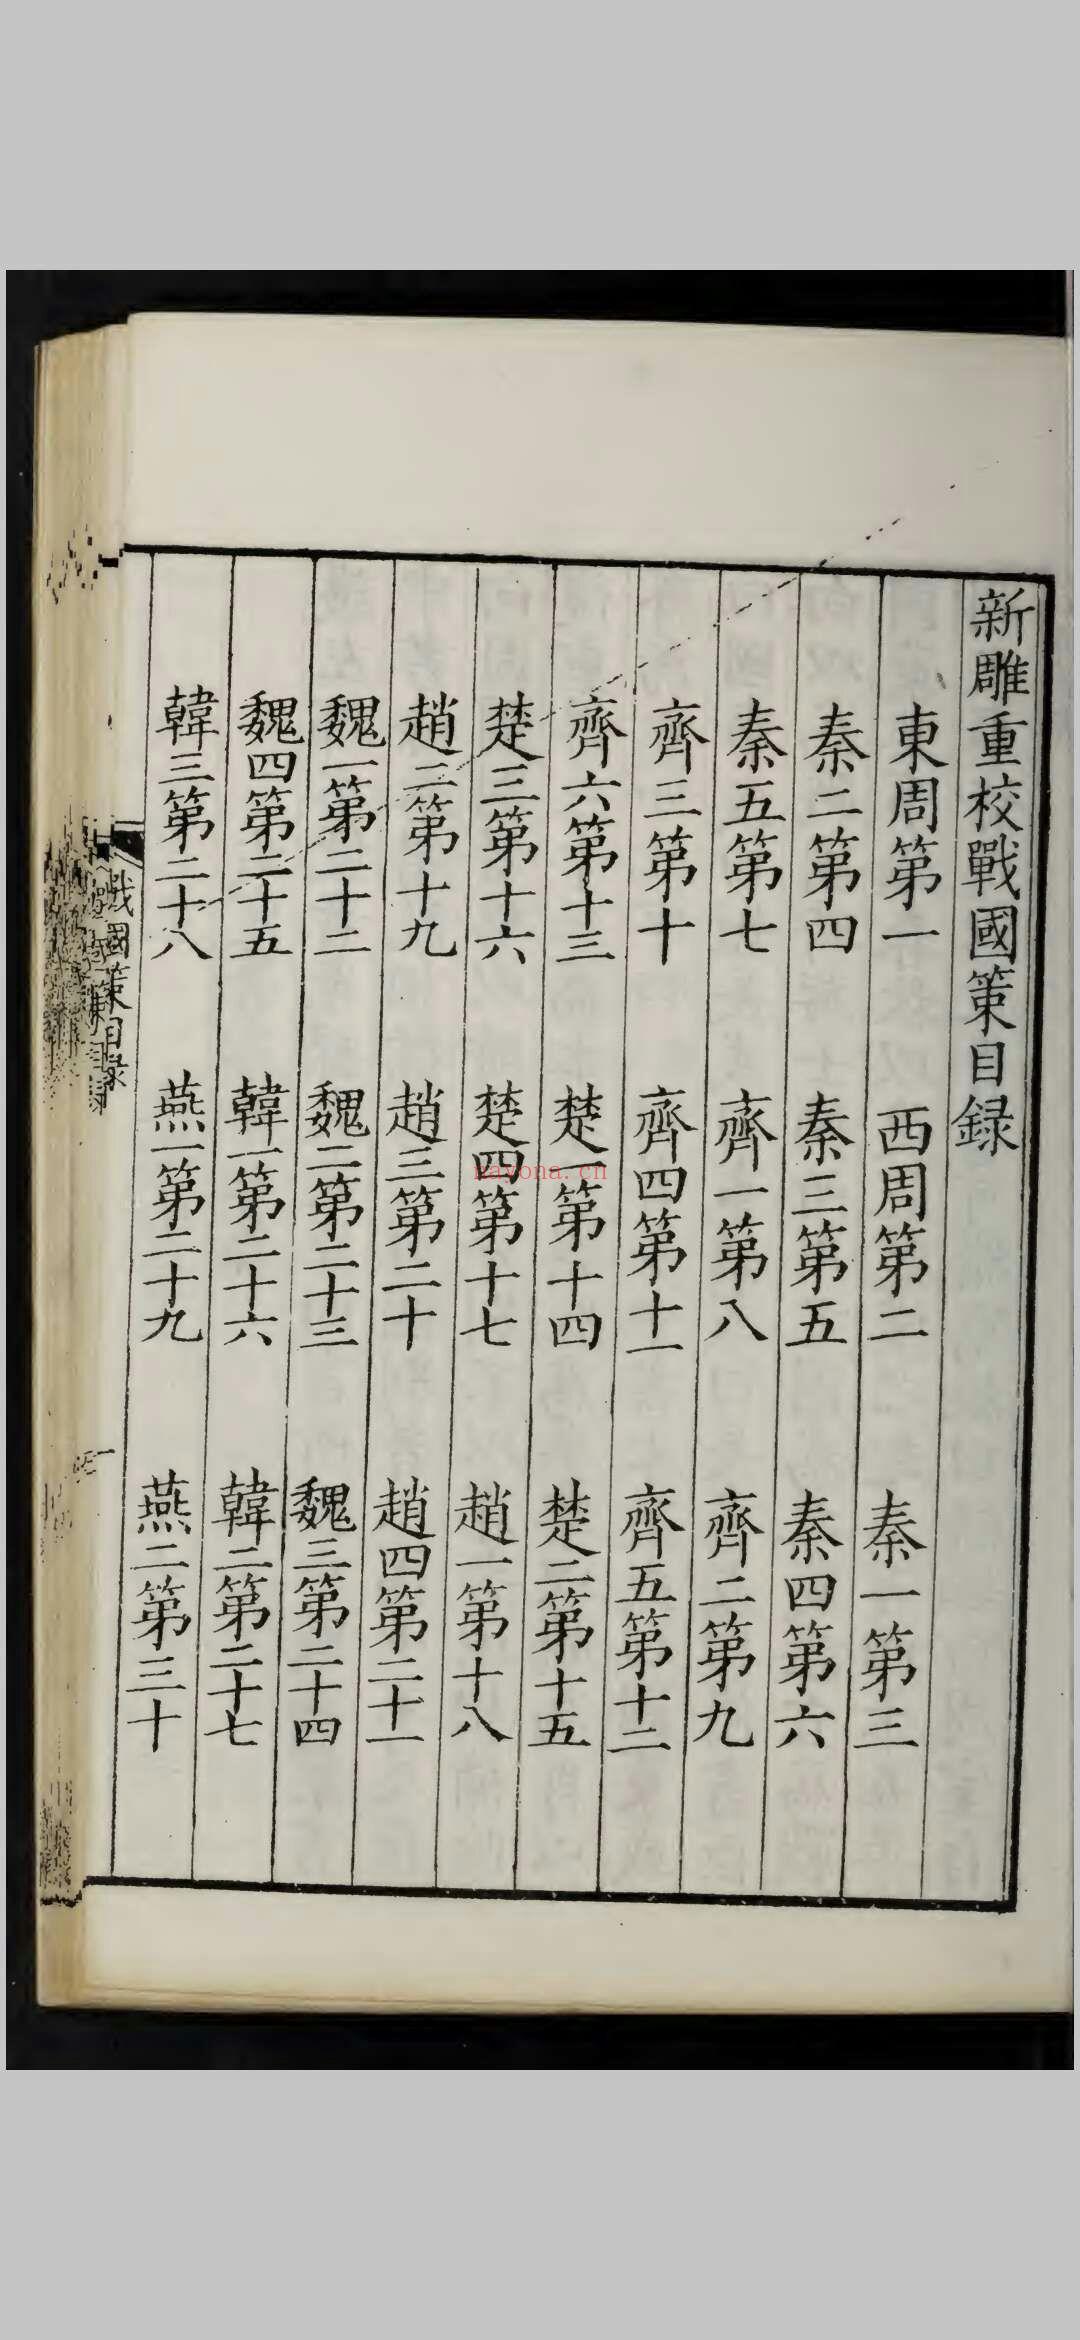 新雕重校戰國策目録
東周第一 西周第二 秦一第三
秦二第四 秦三第五 秦四第六
秦五第七 齊一第八 齊二第九
齊三第十 齊四第十一 齊五第十二
齊六第十三 楚一第十四 楚二第十五
楚三第十六 楚四第十七 趙一第十八
趙二第十九 趙三第二十 趙四第二十一
魏一第二十二 魏二第二十三 魏三第二十四
魏四第二十五 韓一第二十六 韓二第二十七
韓三第二十八 燕一第二十九 燕二第三十
戰國策目録
nayona.cn